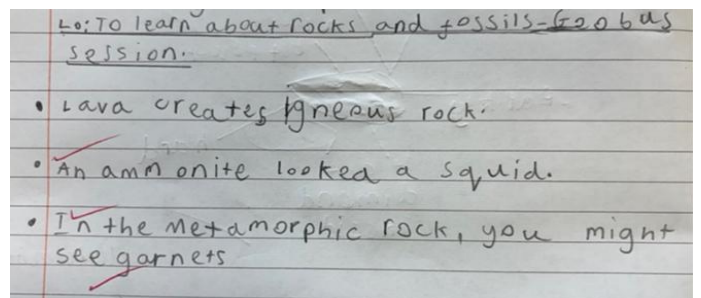 LO: To learn about rocks and fossils-Geobus
session.
• Lava creates Igneous rock.
• An ammonite looked a squid.
• In the Metamorphic rock, you might
see garnets